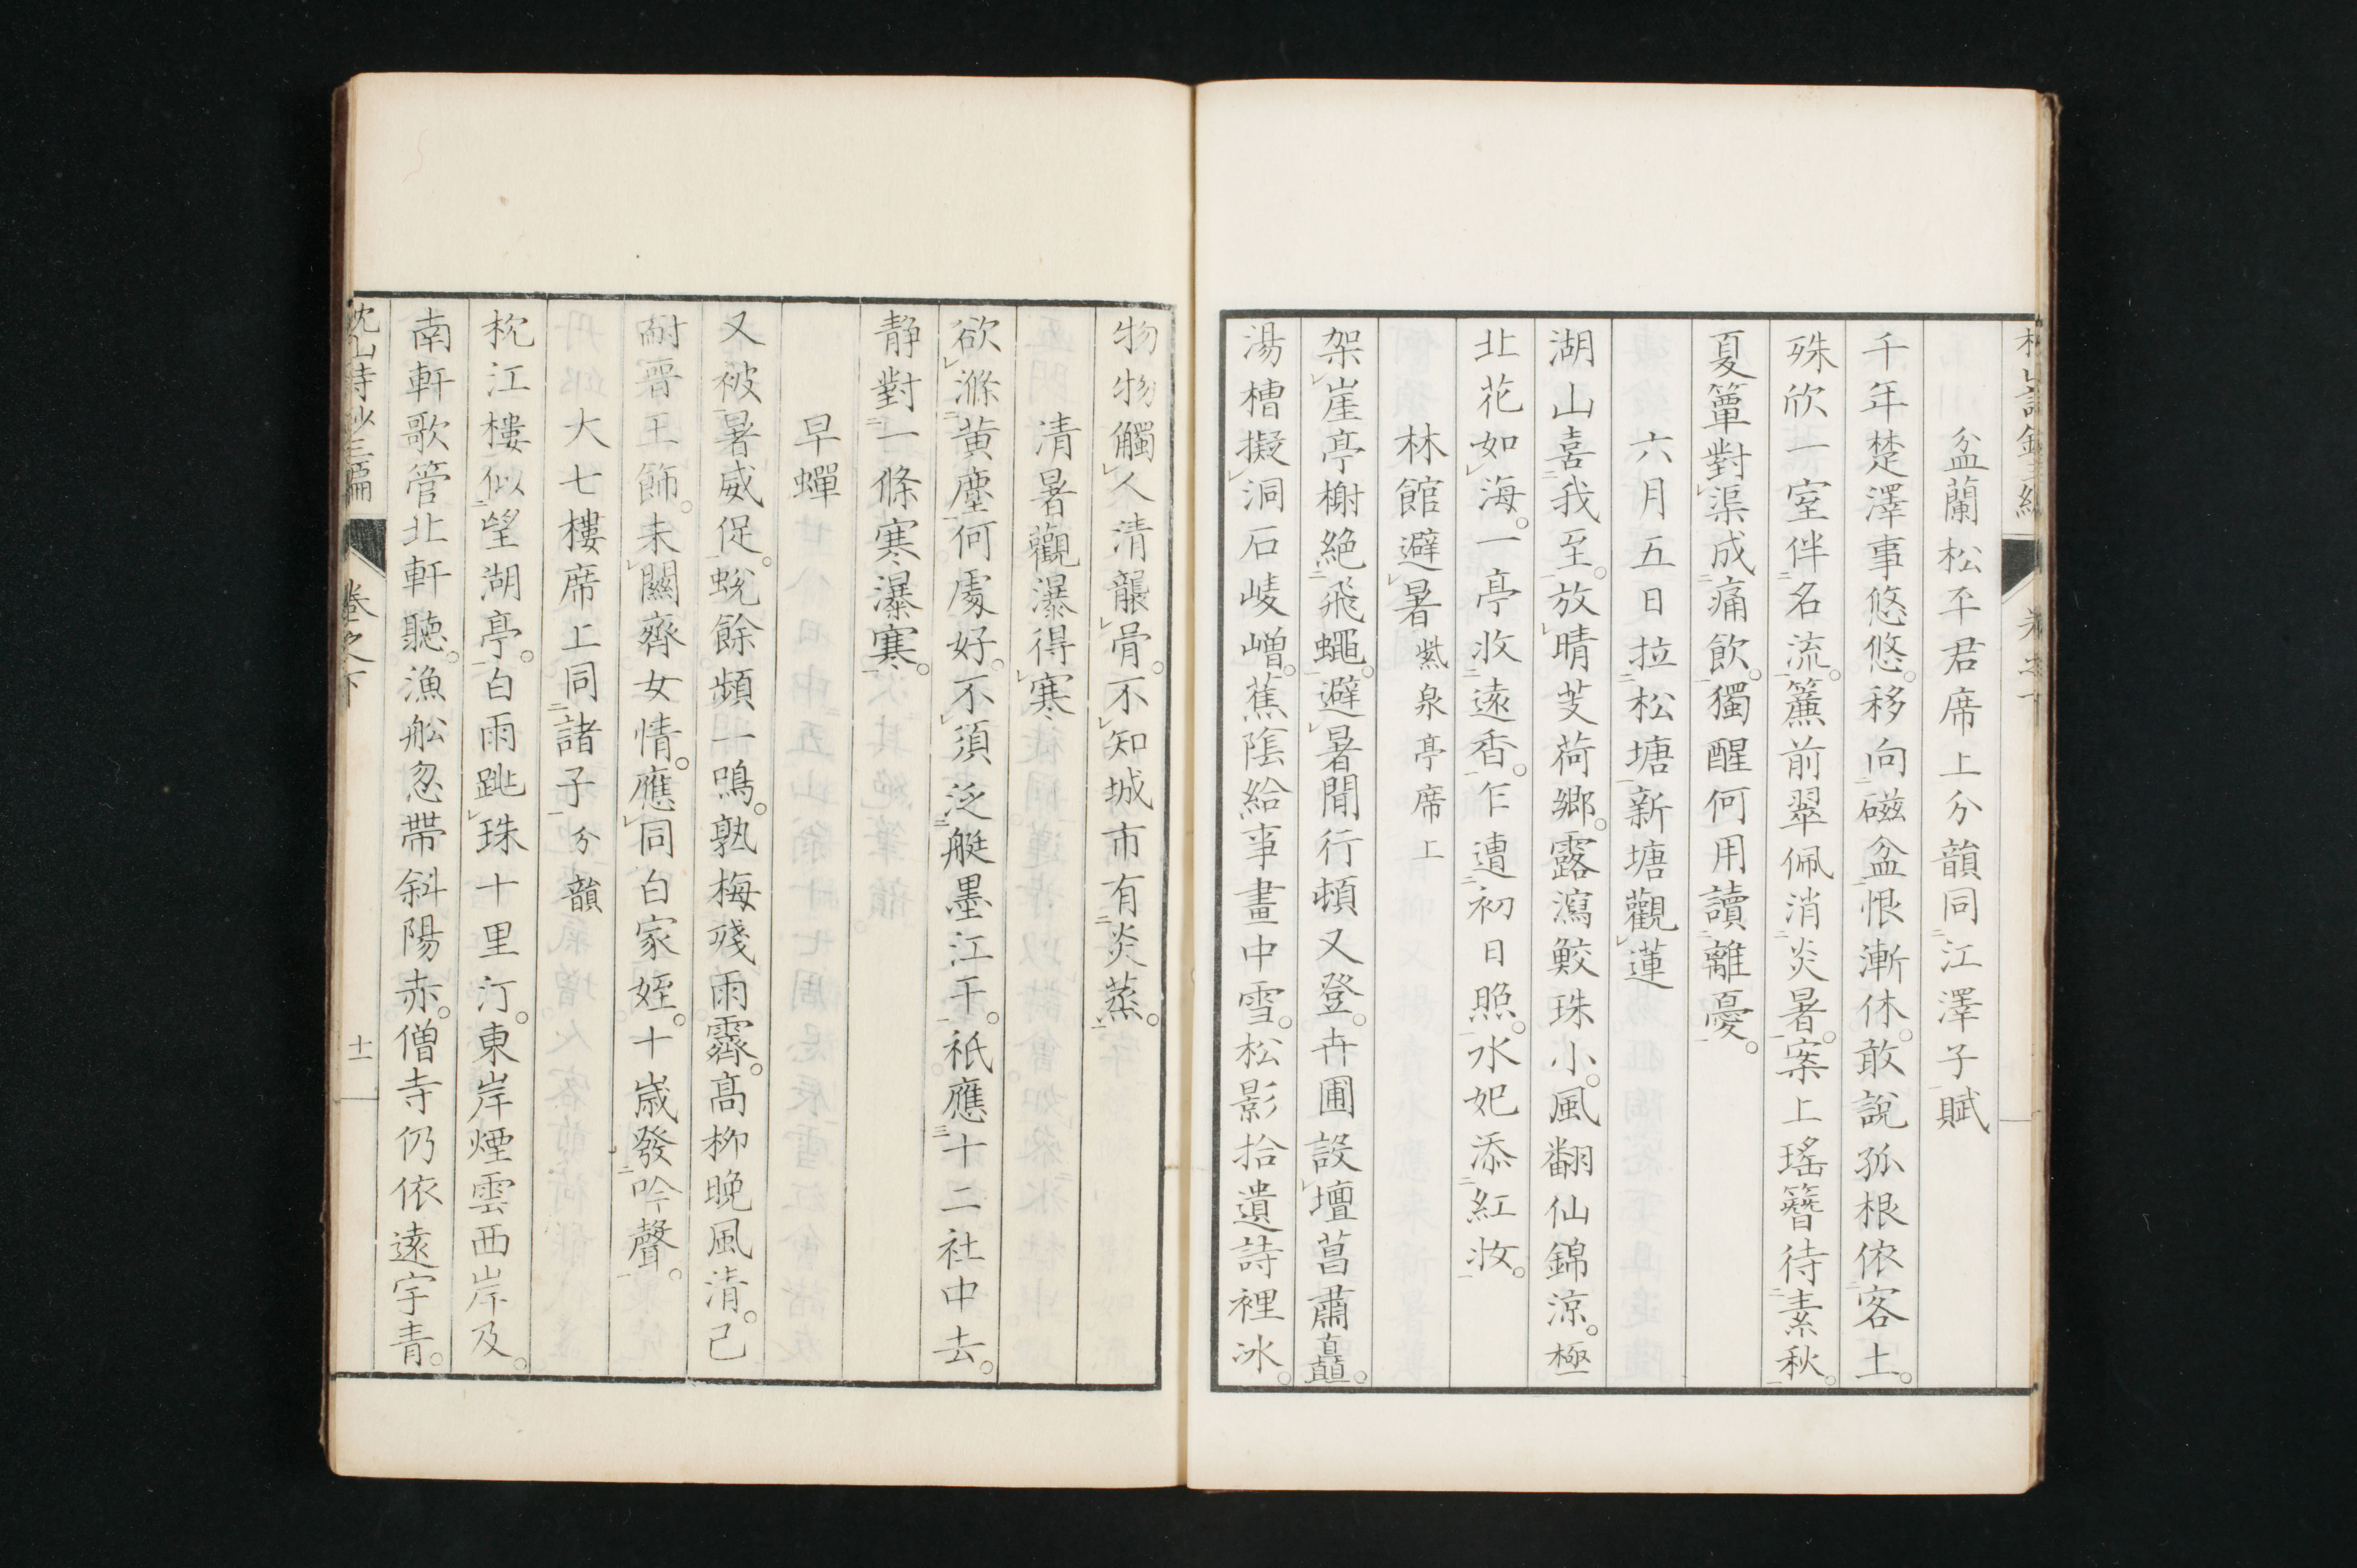 盆蘭松平君席上分韻同江澤子賦
千年楚澤事悠悠。移向磁盆恨漸休。敢說孤根依客土。
殊欣一室伴名流。簾前翠佩消炎暑。案上瑤簪待素秋。
夏簟對渠成痛飲。獨醒何用讀離憂。
六月五日拉松塘新塘觀蓮
湖山喜我至。放晴芰荷鄉。露瀉鮫珠小。風翻仙錦涼。極
北花如海。一亭收遠香。乍遭初日照。水妃添紅妝。
林館避暑紫泉亭席上
架崖亭榭絕飛蠅。避暑閒行頓又登。卉圃設壇菖肅矗。
湯槽擬洞石崚嶒。蕉陰給事畫中雪。松影拾遺詩裡冰。
物物觸人清襲骨。不知城市有炎蒸。
清暑觀瀑得寒
欲滌黃塵何處好。不須泛艇墨江干。祇應十二社中去。
靜對一條寒瀑寒。
早蟬
又被暑威促。蛻餘頻一鳴。熟梅殘雨霽。高柳晚風清。已
耐晋王飾。未關齊女情。應同白家姪。十歲發吟聲。
大七樓席上同諸子分韻
枕江樓似望湖亭。白雨跳珠十里汀。東岸煙雲西岸及。
南軒歌管北軒聽。漁舩忽帶斜陽赤。僧寺仍依遠宇青。
枕山詩鈔三編 卷之下 十一